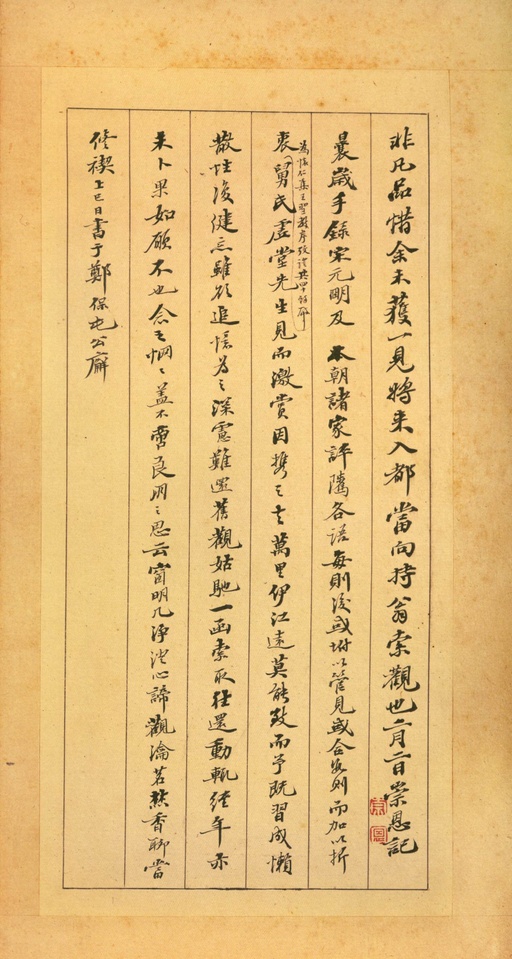 非凡品惜余未獲一見將來入都當向持翁索觀也六月二日崇恩記
曩歲手錄宋元明及本朝諸家評隲各語每則後或坿以管見或合數則而加以折
衷
為懷仁集王聖教序攷證共四册
舅氏虛堂先生見而激賞因攜之去萬里伊江遠莫能致而予既習成懶
散性復健忘雖欲追憶為之深慮難還舊觀姑馳一函索取往還動輒經年亦
未卜果如願不也念之惘惘蓋不啻良朋之思云窗明几淨澄心諦觀瀹茗爇香聊當
修禊上巳日書于鄭保屯公廨